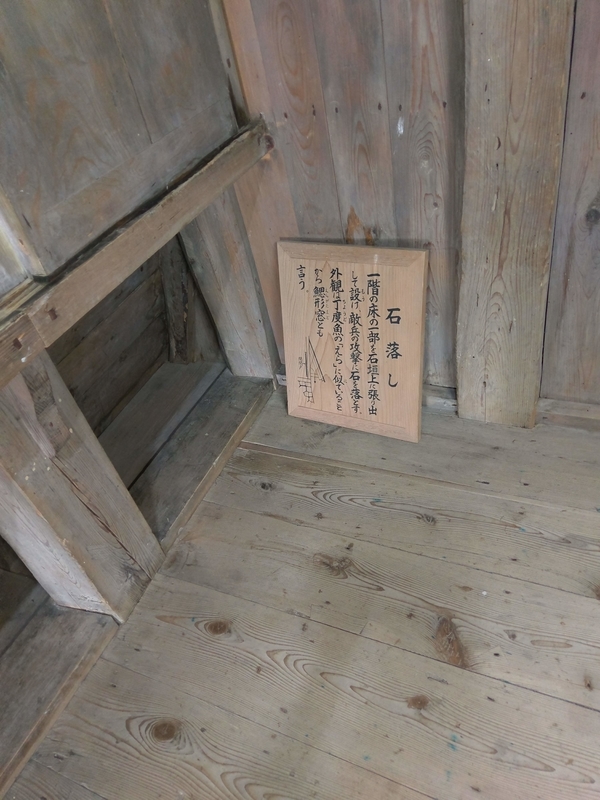 石落し
一階の床の一部を石垣上に張り出
して設け敵兵の攻撃に石を落とす。
外観は丁度魚の「えら」に似ていること
から鰓形窓とも
言う